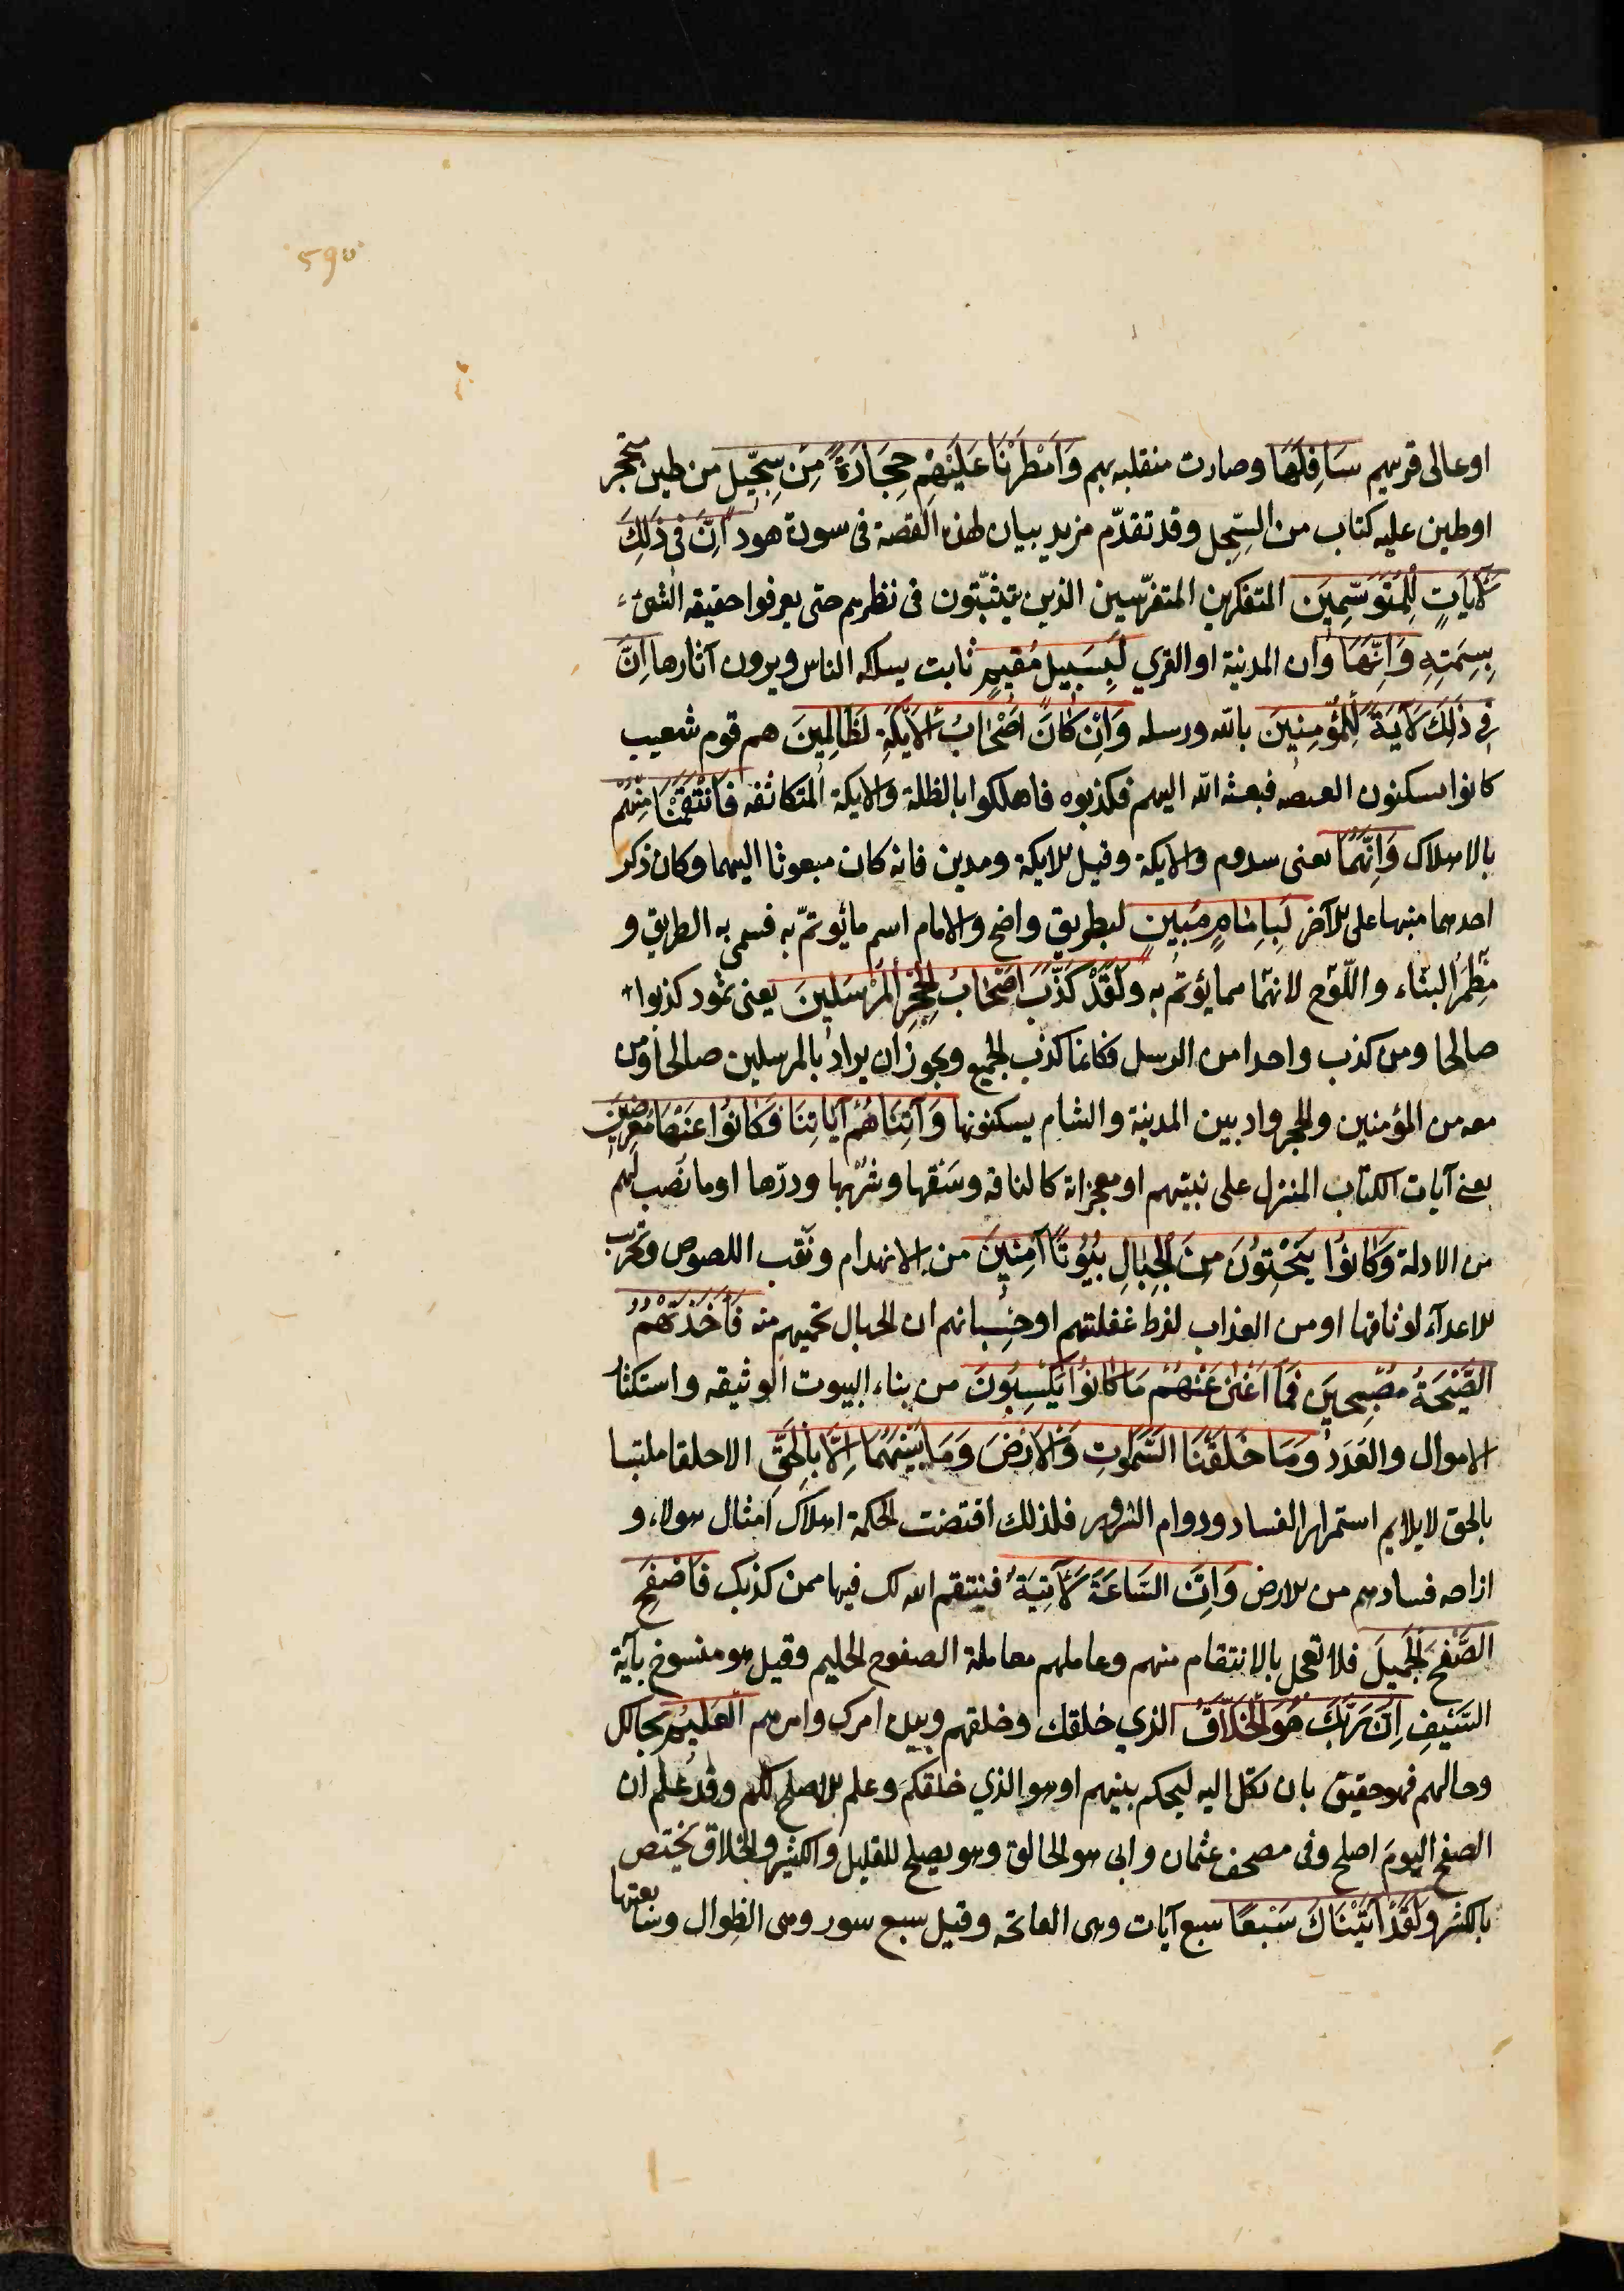 590
اوعالى قريهم سَافِلَهَا وصارت منقلبه بهم وَاَمْطَرْنَا عَلَيْهِمْ حِجَارَةً مِنْ سِجِّيلٍ من طين متحجر
اوطين عليه كتاب من السّجل وقد تقدّم مزيد بيان لهذه القصة فى سورة هود اِنَّ فِى ذٰلِكَ
لَاٰيَاتٍ لِلْمُتَوَسِّمِينَ المتفكرين المتفرّسين الذين يتثبّتون فى نظرهم حتى يعرفوا حقيقه الشئ
بِسِمَتِهِ وَاِنَّهَا وان المدينة او القرى لَبِسَبِيلٍ مُقِيمٍ ثابت يسلكه الناس ويرون آثارها اِنَّ
فِى ذٰلِكَ لَاٰيَةً لِلْمُؤْمِنِينَ بالله ورسله وَاِنْ كَانَ اَصْحَابُ الْاَيْكَةِ لَظَالِمِينَ هم قوم شعيب
كانوا يسكنون الغيضه فبعثه الله اليهم فكذبوه فاهلكوا بالظلة والايكة المتكاثفه فَانْتَقَمْنَا مِنْهُمْ
بالاهلاك وَاِنَّهُمَا يعنى سدوم والايكة وقيل الايكة ومدين فانه كان مبعوثا اليهما وكان ذكر
احدهما منبها على الآخر لَبِاِمَامٍ مُبِينٍ لبطريق واضح والامام اسم مايؤتمّ به فسمى به الطريق و
مِطْمَر البناء واللّوح لانهما مما يؤتمّ به وَلَقَدْ كَذَّبَ اَصْحَابُ الْحِجْرِ الْمُرْسَلِينَ يعنى ثمود كذبوا
صالحا ومن كذب واحدا من الرسل فكانما كذب الجميع ويجوز ان يراد بالمرسلين صالحا ومن
معه من المؤمنين والحجر واد بين المدينة والشام يسكنونها وَاٰتَيْنَاهُمْ اٰيَاتِنَا فَكَانُوا عَنْهَا مُعْرِضِينَ
يعنى آيات الكتاب المنزل على نبيّهم او معجزاته كالناقه وسَقْيها وشُرْبها ودرّها اوما نُصب لهم
من الادلة وَكَانُوا يَنْحِتُونَ مِنَ الْجِبَالِ بُيُوتًا اٰمِنِينَ من الانهدام ونَقْب اللصوص وتخريب
الاعدآء لوثاقتها او من العذاب لفرط غفلتهم او حِسْبانهم ان الجبال تحميهم منه فَاَخَذَتْهُمُ
الصَّيْحَةُ مُصْبِحِينَ فَمَا اَغْنٰى عَنْهُمْ مَا كَانُوا يَكْسِبُونَ من بناء البيوت الوثيقه واستكثار
الاموال والعَدَد وَمَا خَلَقْنَا السَّمٰوٰتِ وَالْاَرْضَ وَمَا بَيْنَهُمَا اِلَّا بِالْحَقِّ الا خلقا ملتبسا
بالحق لايلايم استمرار الفساد ودوام الشرور فلذلك اقتضت الحكمة اهلاك امثال هولاء و
ازاحه فسادهم من الارض وَاِنَّ السَّاعَةَ لَاٰتِيَةٌ فينتقم الله لك فيها ممن كذبك فَاصْفَحِ
الصَّفْحَ الْجَمِيلَ فلا تعجل بالانتقام منهم وعاملهم معاملة الصفوح الحليم وقيل هو منسوخ بآية
السَّيْفِ اِنَّ رَبَّكَ هُوَ الْخَلَّاقُ الذي خلقك وخلقهم وبيده امرك وامرهم الْعَلِيمُ بحالك
وحالهم فهو حقيق بان تكل اليه ليحكم بينهم او هو الذي خلقكم وعلم الاصلح لكم وقد علم ان
الصفح اليوم اصلح وفى مصحف عثمان وابى هو الخالق وهو يصلح للقليل والكثير والخلاق يختص
بالكثير وَلَقَدْ اٰتَيْنَاكَ سَبْعًا سبع آيات وهى الفاتحه وقيل سبع سور وهى الطوال وسابعتها